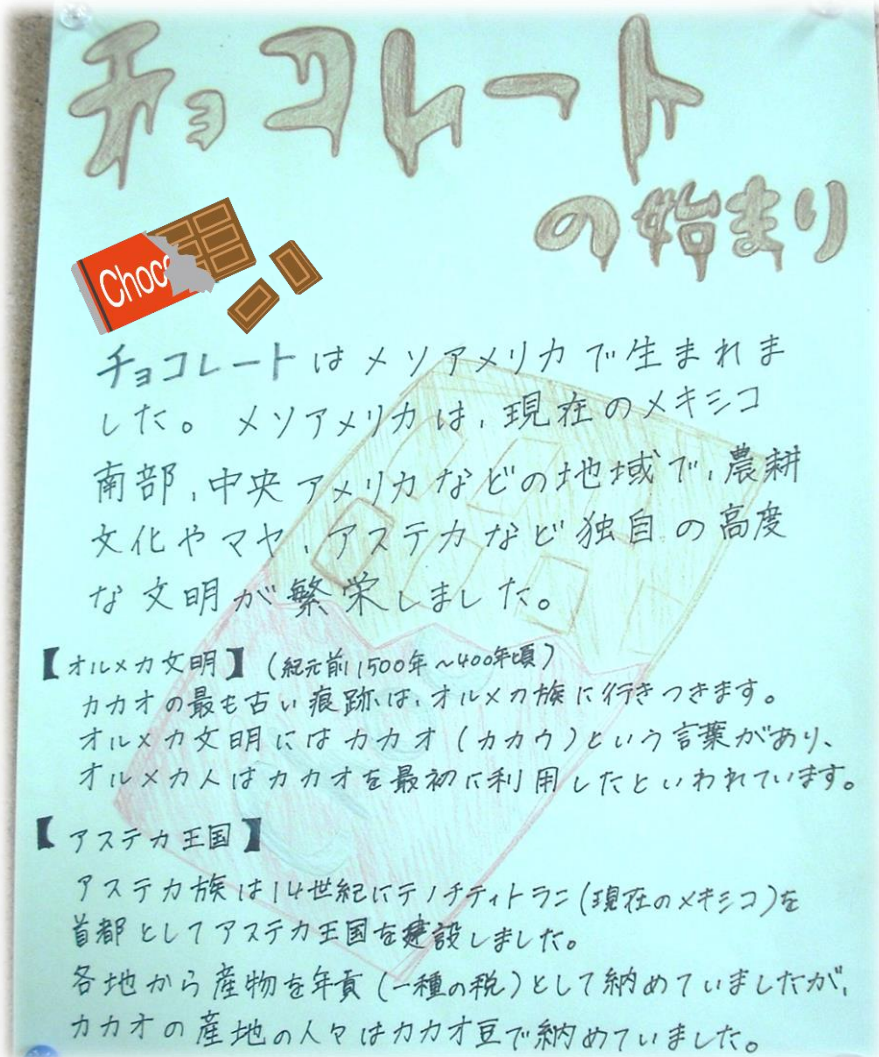 チョコレート
の始まり
Choc
チョコレートはメソアメリカで生まれま
した。メソアメリカは、現在のメキシコ
南部、中央アメリカなどの地域で、農耕
文化やマヤ、アステカなど独自の高度
な文明が繁栄しました。
【オルメカ文明】(紀元前1500年~400年頃)
カカオの最も古い痕跡は、オルメカ族に行きつきます。
オルメカ文明にはカカオ(カカウ)という言葉があり、
オルメカ人はカカオを最初に利用したといわれています。
【アステカ王国】
アステカ族は14世紀にテノチティトラニ(現在のメキシコ)を
首都としてアステカ王国を建設しました。
各地から産物を年貢(一種の税)として納めていましたが、
カカオの産地の人々はカカオ豆で納めていました。